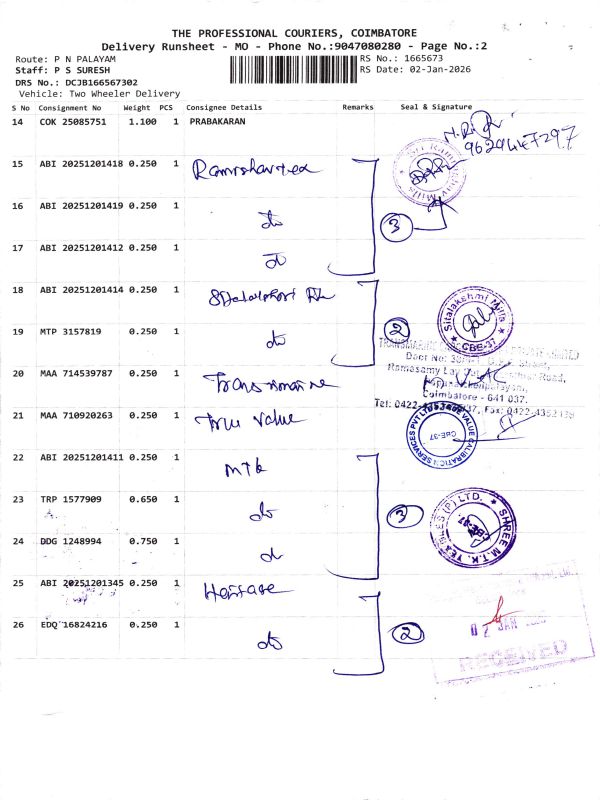 THE PROFESSIONAL COURIERS, COIMBATORE
Delivery Runsheet - MO - Phone No.:9047080280 - Page No.:2
Route: P N PALAYAM
RS No.: 1665673
Staff: P S SURESH
RS Date: 02-Jan-2026
DRS No.: DCJB166567302
Vehicle: Two Wheeler Delivery
S No Consignment No Weight PCS Consignee Details Remarks Seal & Signature
14 COK 25085751 1.100 1 PRABAKARAN
9629447297
15 ABI 20251201418 0.250 1
16 ABI 20251201419 0.250 1 do
3
17 ABI 20251201412 0.250 1 do
18 ABI 20251201414 0.250 1
Sitalakshmi Mills
CBE-37
19 MTP 3157819 0.250 1 do
2
20 MAA 714539787 0.250 1 Transmarine
Ramasamy Lay Out, Road,
Coimbatore - 641 037.
Tel: 0422- 37, Fax: 0422-4352139
21 MAA 710920263 0.250 1 True Value
TRUE VALUE CALIBRATION SERVICES PVT LTD
CBE-37
22 ABI 20251201411 0.250 1 mtk
23 TRP 1577909 0.650 1 do
3
SHREE M.T.K. TEXTILES (P) LTD.
CBE-37
24 DDG 1248994 0.750 1 do
25 ABI 20251201345 0.250 1 Heritage
26 EDQ 16824216 0.250 1 do
2
02 JAN
RECEIVED